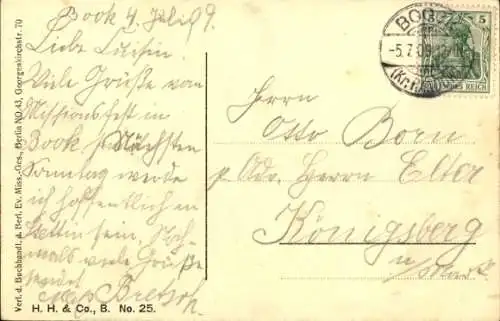 Book 4. Juli 09.
Liebe Cousin.
Viele Grüße vom
Missionsfest in
Book. Nächsten
Sonntag werde
ich hoffentlich in
Stettin sein. Noch-
mals viele Grüße
sendet
Bretsch.
Verl. d. Buchhandl. d. Berl. Ev. Miss.-Ges., Berlin NO.43, Georgenkirchstr. 70
H. H. & Co., B. No. 25.
5
-5.7.09
DEUTSCHES REICH
Herrn
Otto Born
p Adr. Herrn Elter
Königsberg
n/Mark